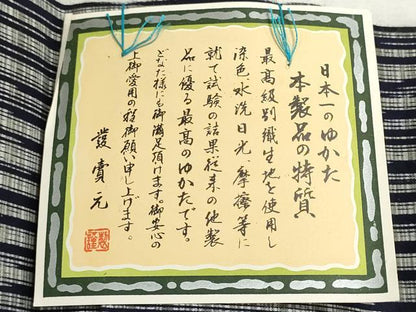 日本一のゆかた
本製品の特質
最高級別織生地を使用し
染色、水洗、日光、摩擦等に
就て試験の結果従来の他製
品に優る最高のゆかたです。
どなた様にも御満足頂けます。御安心の
上御愛用の程御願い申し上げます。
発賣元